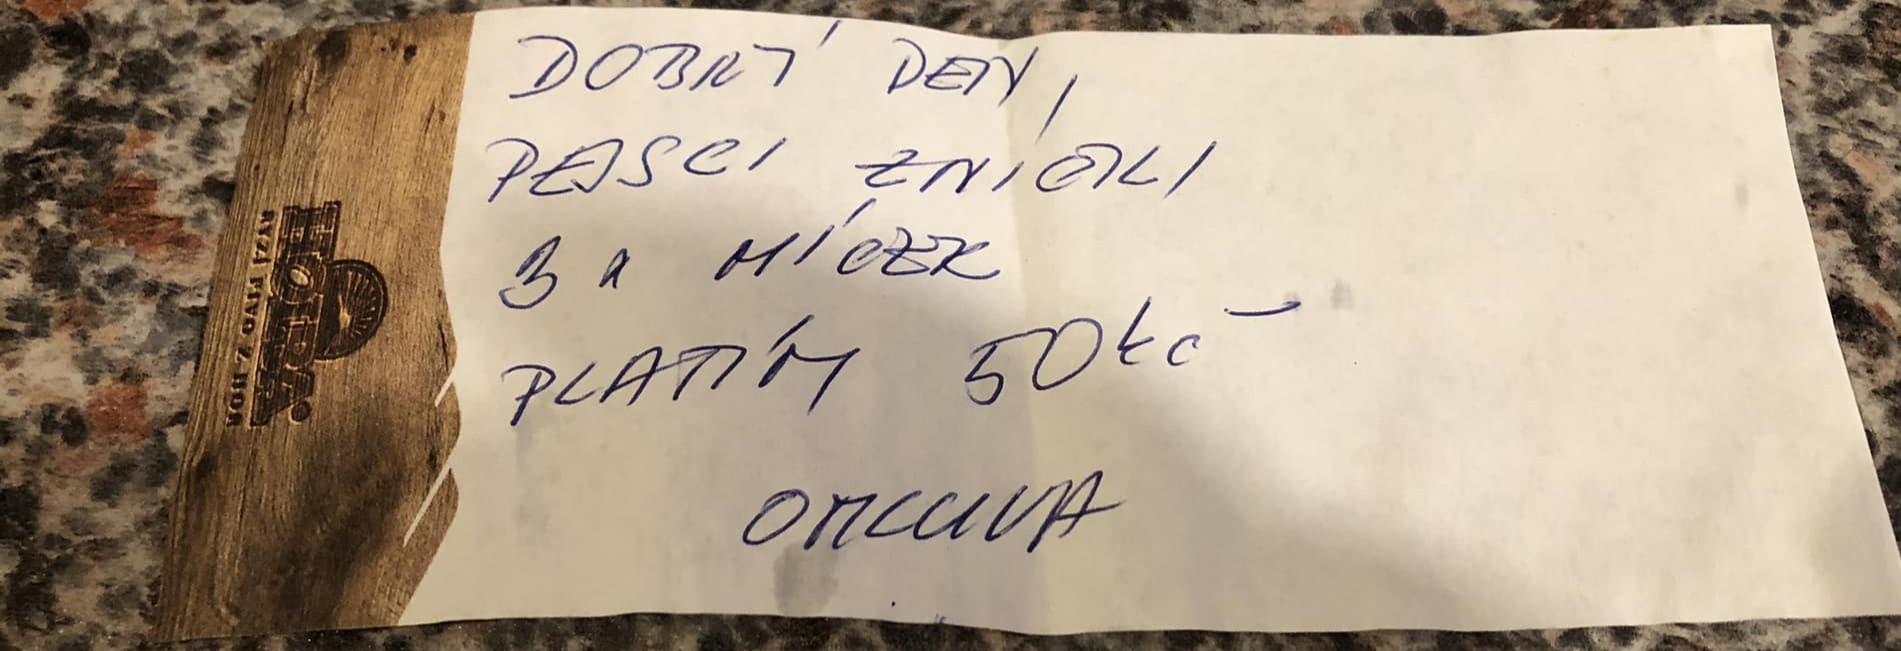 HORA®
RYZÍ PIVO Z HOR
DOBRÝ DEN,
PEJSCI ZNIČILI
3 x MÍČEK
PLATÍM 50 Kč
OMLUVA